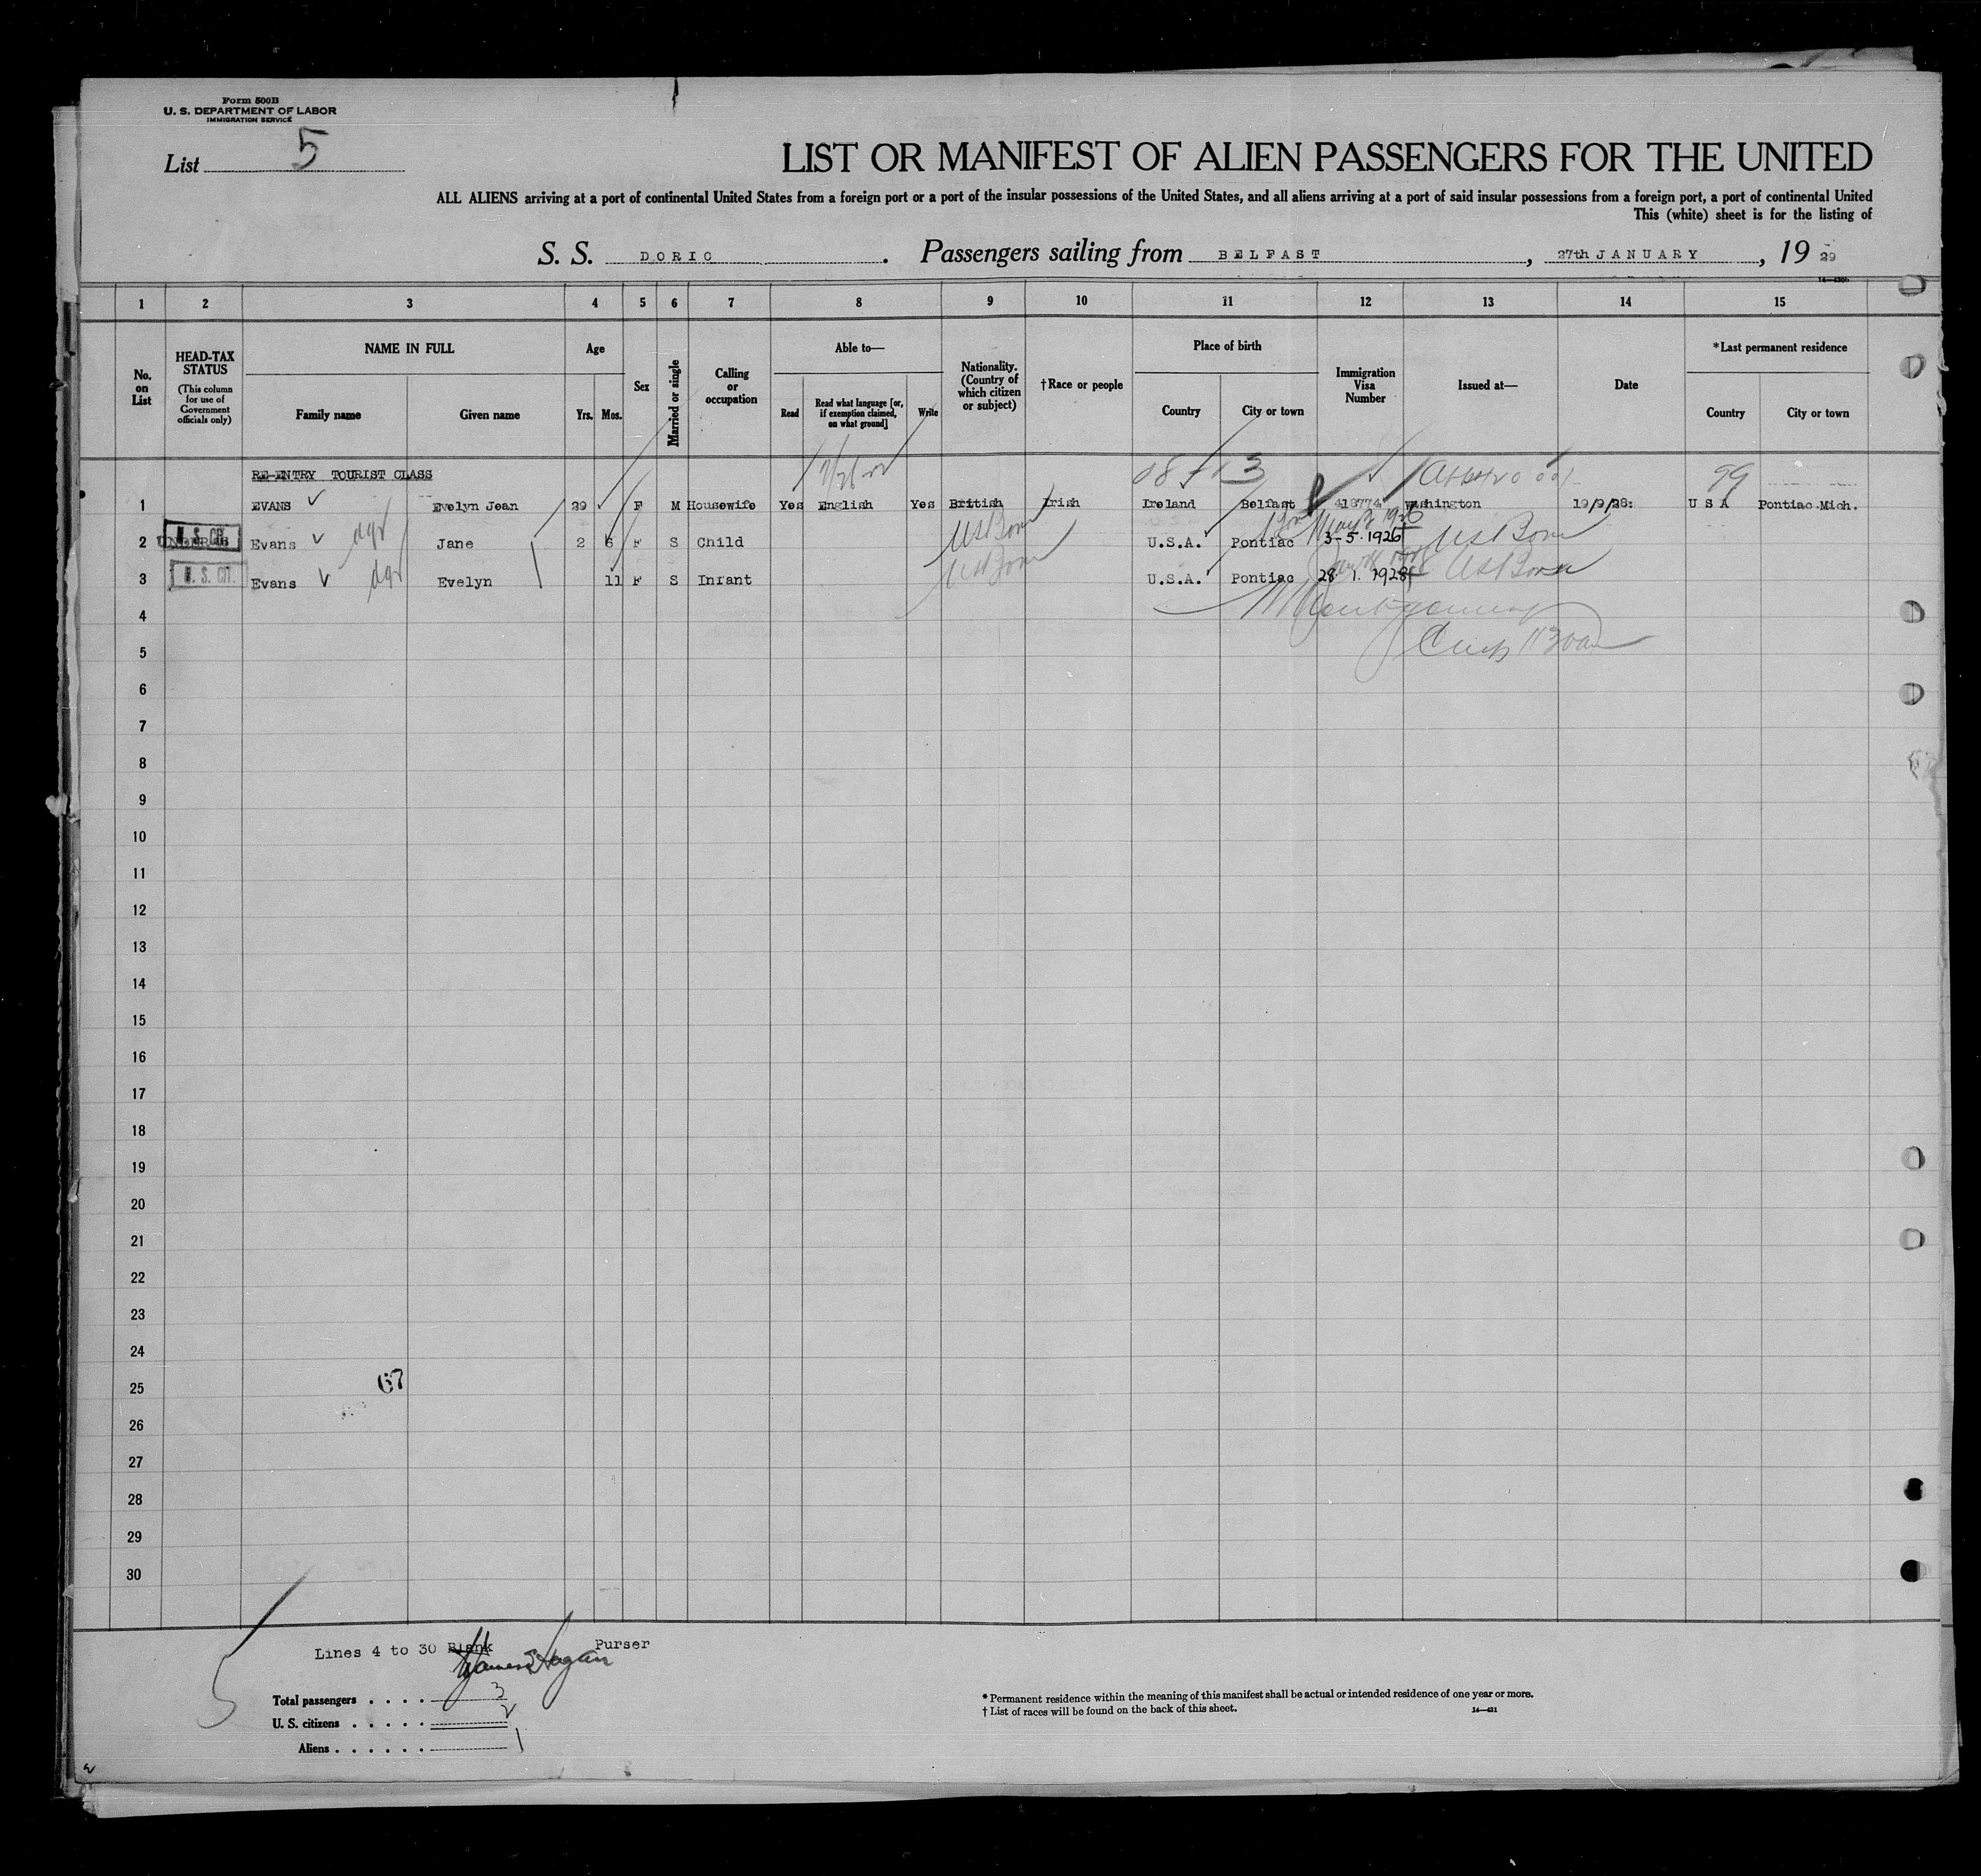 Form 500B
U. S. DEPARTMENT OF LABOR
IMMIGRATION SERVICE
List 5
LIST OR MANIFEST OF ALIEN PASSENGERS FOR THE UNITED
ALL ALIENS arriving at a port of continental United States from a foreign port or a port of the insular possessions of the United States, and all aliens arriving at a port of said insular possessions from a foreign port, a port of continental United
This (white) sheet is for the listing of
S. S. DORIC . Passengers sailing from BELFAST , 27th JANUARY , 19 29
1 2 3 4 5 6 7 8 9 10 11 12 13 14 15
No. on List
HEAD-TAX STATUS
(This column for use of Government officials only)
NAME IN FULL
Family name
Given name
Age
Yrs. Mos.
Sex
Married or single
Calling or occupation
Able to—
Read
Read what language [or, if exemption claimed, on what ground]
Write
Nationality. (Country of which citizen or subject)
†Race or people
Place of birth
Country
City or town
Immigration Visa Number
Issued at—
Date
*Last permanent residence
Country
City or town
RE-ENTRY TOURIST CLASS
99
1 EVANS Evelyn Jean 29 F M Housewife Yes English Yes British Irish Ireland Belfast 418774 Washington 19/9/28: U S A Pontiac Mich.
2 Evans Jane 2 6 F S Child US Born U.S.A. Pontiac 3-5-1926 US Born
3 Evans Evelyn 11 F S Infant US Born U.S.A. Pontiac 28 1. 1928 US Born
4
5
6
7
8
9
10
11
12
13
14
15
16
17
18
19
20
21
22
23
24
25 67
26
27
28
29
30
Lines 4 to 30 Blank Purser
Total passengers . . . . 3
U. S. citizens . . . . . 2
Aliens . . . . . . 1
* Permanent residence within the meaning of this manifest shall be actual or intended residence of one year or more.
† List of races will be found on the back of this sheet.
14—421